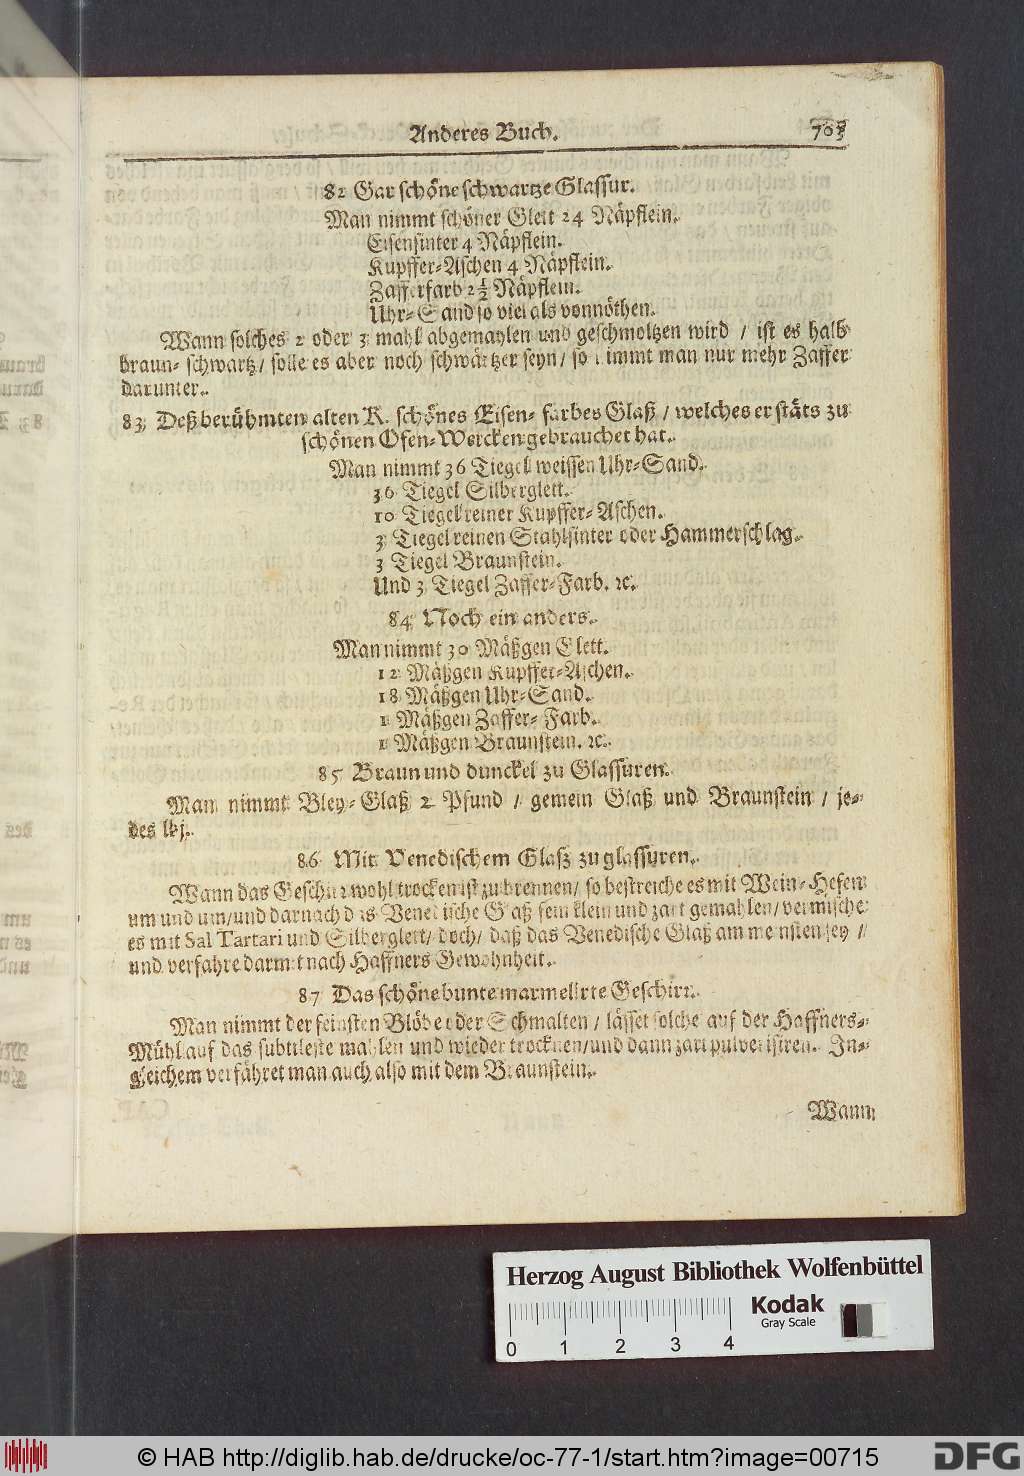 Anderes Buch. 703
82 Gar schöne schwartze Glassur.
Man nimmt schöner Glett 24 Näpflein.
Eisensinter 4 Näpflein.
Kupffer-Aschen 4 Näpflein.
Zafferfarb 2½ Näpflein.
Uhr-Sand so viel als vonnöthen.
Wann solches 2 oder 3 mahl abgemahlen und geschmoltzen wird / ist es halb
braun-schwartz / solle es aber noch schwärtzer seyn / so nimmt man nur mehr Zaffer
darunter.
83 Deß berühmten alten R. schönes Eisen-farbes Glaß / welches er stäts zu
schönen Ofen-Wercken gebrauchet hat.
Man nimmt 36 Tiegel weissen Uhr-Sand.
36 Tiegel Silberglett.
10 Tiegel reiner Kupffer-Aschen.
3 Tiegel reinen Stahlsinter oder Hammerschlag.
3 Tiegel Braunstein.
Und 3 Tiegel Zaffer-Farb. ꝛc.
84 Noch ein anders.
Man nimmt 30 Mäßgen Glett.
12 Mäßgen Kupffer-Aschen.
18 Mäßgen Uhr-Sand.
1 Mäßgen Zaffer-Farb.
1 Mäßgen Braunstein. ꝛc.
85 Braun und dunckel zu Glassuren.
Man nimmt Bley-Glaß 2 Pfund / gemein Glaß und Braunstein / je-
des lbj.
86 Mit Venedischem Glasz zu glassuren.
Wann das Geschirr wohl trocken ist zu brennen / so bestreiche es mit Wein-Hefen
um und um / und darnach das Venedische Glaß fein klein und zart gemahlen / vermische
es mit Sal Tartari und Silberglett / doch / daß das Venedische Glaß am meinsten sey /
und verfahre darmit nach Haffners Gewohnheit.
87 Das schöne bunte marmelirte Geschirr.
Man nimmt der feinsten Blöbe oder Schmalten / lässet solche auf der Haffners-
Mühl auf das subtileste mahlen und wieder trocknen / und dann zart pulverisiren. In-
gleichem verfähret man auch also mit dem Braunstein.
Wann
Herzog August Bibliothek Wolfenbüttel
Kodak
Gray Scale
0 1 2 3 4
© HAB http://diglib.hab.de/drucke/oc-77-1/start.htm?image=00715
DFG